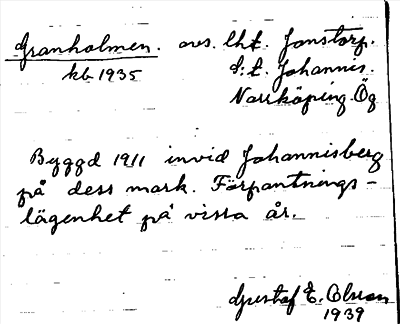 Granholmen. avs. lht. Jonstorp.
kb 1935 S:t. Johannis.
Norrköping. Ög
Byggd 1911 invid Johannisberg
på dess mark. Förpantnings-
lägenhet på vissa år.
Gustaf E. Olsson
1939